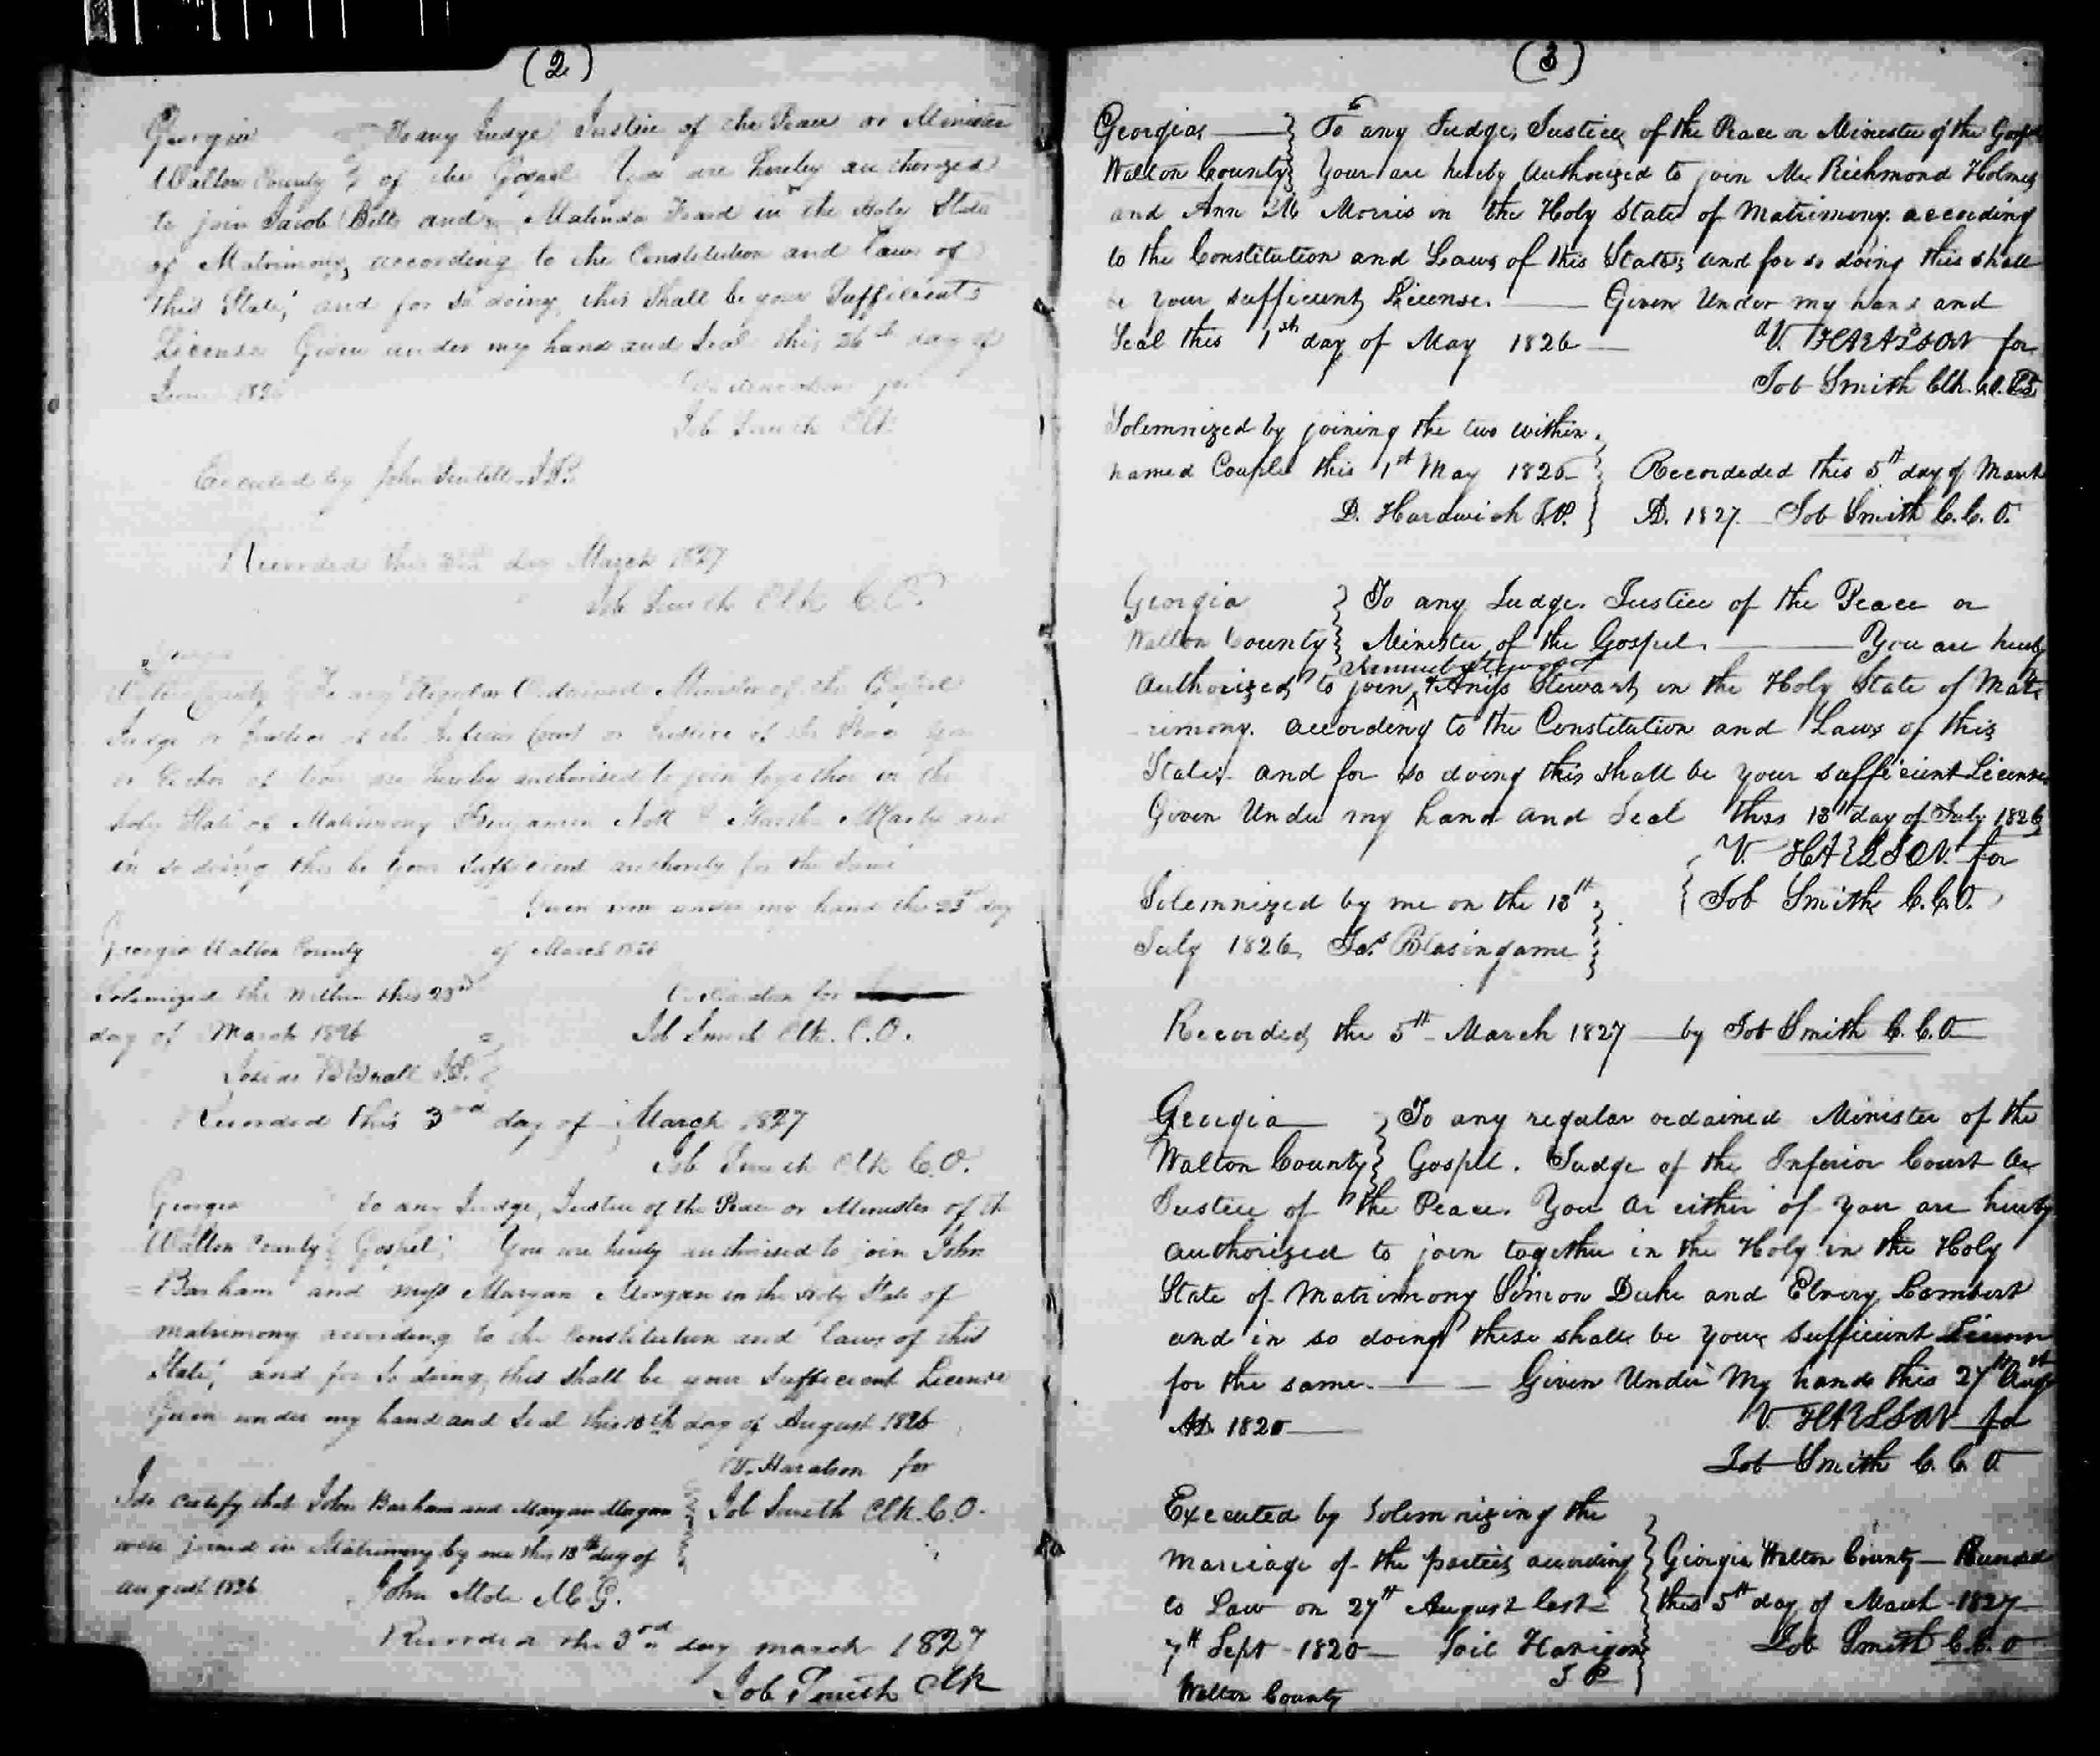 (2)
Georgia To any Judge Justice of the Peace or Minister
Walton County of the Gospel You are hereby authorized
to join Jacob Betts and Malinda in the Holy State
of Matrimony according to the Constitution and laws of
this State, and for so doing, this Shall be your Sufficient
License Given under my hand and Seal this 26th day of
June 1826
for
Job Smith Clk.
Executed by John J.P.
Recorded this day March 1827
Job Smith Clk C.O.
Georgia
Walton County To any Regular Ordained Minister of the Gospel
Judge or Justice of the Inferior Court or Justice of the Peace You
or Either of You are hereby authorised to join together in the
Holy State of Matrimony Benjamin Nolt & Martha and
in so doing this be your Sufficient authority for the Same
Given under my hand the 23d day
Georgia Walton County of March 1826
Solemnized the within this 23rd for
day of March 1826 Job Smith Clk. C.O.
J.P.
Recorded this 3rd day of March 1827
Job Smith Clk C.O.
Georgia to any Judge, Justice of the Peace or Minister of the
Walton County Gospel; You are hereby authorised to join John
= Barham and Miss Maryan Morgan in the Holy State of
matrimony according to the Constitution and laws of this
State, and for so doing, this shall be your sufficient License
Given under my hand and Seal this 10th day of August 1826
V. Haralson for
I do certify that John Barham and Maryan Morgan Job Smith Clk. C.O.
were joined in Matrimony by me this 13th day of
August 1826 John Mote M.G.
Recorded the 3rd day march 1827
Job Smith Clk
(3)
Georgia To any Judge, Justice of the Peace or Minister of the Gospel
Walton County Your are hereby authorized to join Mr Richmond Holmes
and Ann M Morris in the Holy State of Matrimony. according
to the Constitution and Laws of this State; and for so doing this shall
be your sufficient License. Given Under my hand and
Seal this 1st day of May 1826 V. HARALSON for
Job Smith Clk. C.O.
Solemnized by joining the two within
named Couple this 1st May 1826 Recordeded this 5th day of March
D. Hardwick J.P. AD. 1827. Job Smith C.C.O.
Georgia To any Judge. Justice of the Peace or
Walton County Minister of the Gospel. You are hereby
Authorized to join & Anis Stewart in the Holy State of Mat
rimony. according to the Constitution and Laws of this
State; and for so doing this shall be your sufficient License
Given Under my hand and Seal this 13th day of July 1826
V. HARLSON. for
Solemnized by me on the 13th Job Smith C.C.O.
July 1826, Jas. Blasingame
Recorded the 5th March 1827 by Job Smith C.C.O
Georgia To any regular ordained Minister of the
Walton County Gospel. Judge of the Inferior Court Or
Justice of the Peace. You Or either of You are hereby
authorized to join together in the Holy in the Holy
State of Matrimony Simon Duke and Elvery Lambert
and in so doing these shall be your sufficient License
for the same. Given Under My hand this 27th Augst
AD. 1826 V. HARLSON for
Job Smith C.C.O
Executed by Solemnizing the
marriage of the parties according Georgia Walton County Recorded
to Law on 27th August last this 5th day of March 1827
7th Sept 1826 Harigon Job Smith C.C.O
J P
Walton County